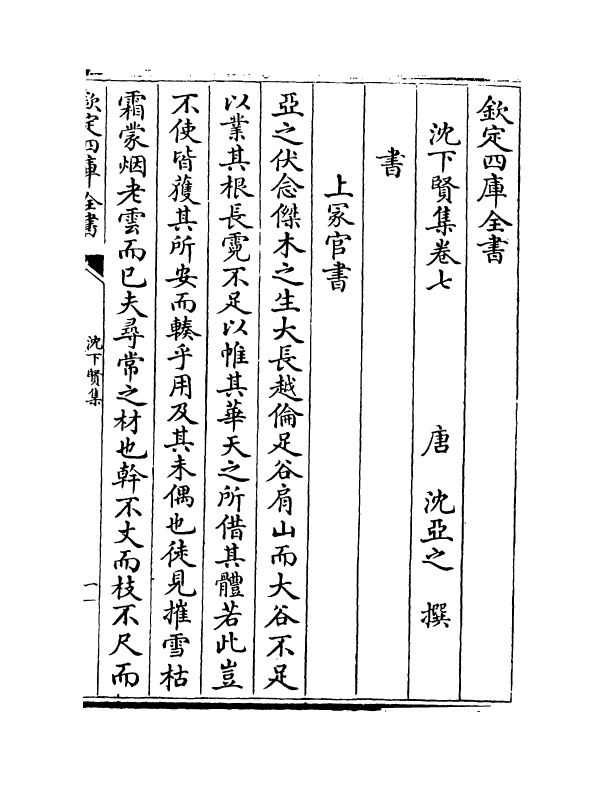 欽定四庫全書
沈下賢集卷七
唐 沈亞之 撰
書
上冢官書
亞之伏念傑木之生大長越倫足谷肩山而大谷不足
以業其根長霓不足以帷其華天之所借其體若此豈
不使皆獲其所安而轃乎用及其未偶也徒見摧雪枯
霜蒙烟老雲而已夫尋常之材也幹不丈而枝不尺而
欽定四庫全書
沈下賢集
一